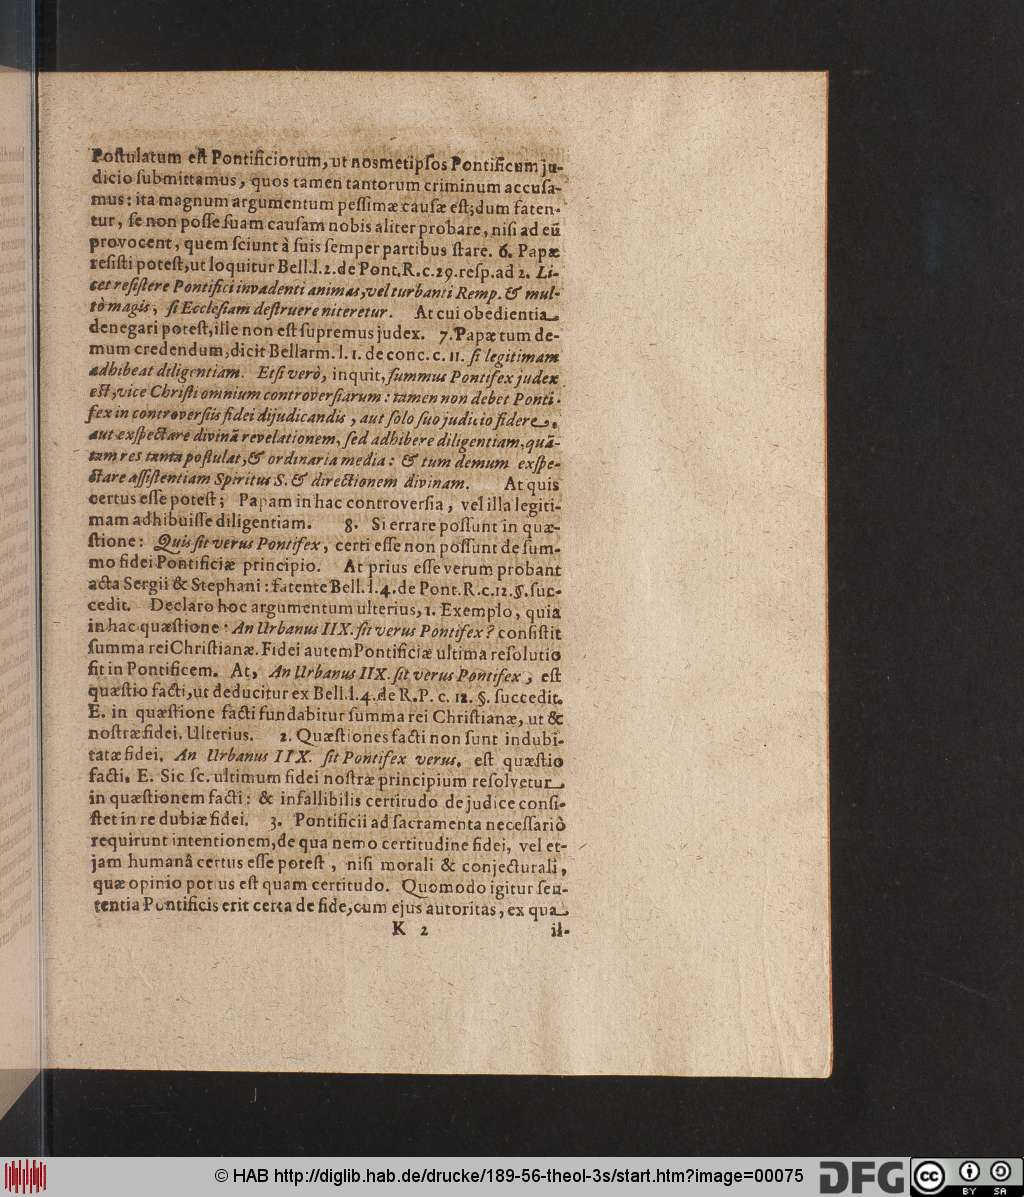 Poſtulatum eſt Pontificiorum, ut nosmetipſos Pontificum ju-
dicio ſubmittamus, quos tamen tantorum criminum accuſa-
mus: ita magnum argumentum peſſimæ cauſæ eſt; dum faten-
tur, ſe non poſſe ſuam cauſam nobis aliter probare, niſi ad eũ
provocent, quem ſciunt à ſuis ſemper partibus ſtare. 6. Papæ
reſiſti poteſt, ut loquitur Bell. l. 2. de Pont. R. c. 29. reſp. ad 2. Li-
cet reſiſtere Pontifici invadenti animas, vel turbanti Remp. & mul-
tò magis, ſi Eccleſiam deſtruere niteretur. At cui obedientia
denegari poteſt, ille non eſt ſupremus judex. 7. Papæ tum de-
mum credendum, dicit Bellarm. l. 1. de conc. c. 11. ſi legitimam
adhibeat diligentiam. Etſi verò, inquit, ſummus Pontifex judex
eſt, vice Chriſti omnium controverſiarum: tamen non debet Ponti-
fex in controverſiis fidei dijudicandis, aut ſolo ſuo judicio fidere,
aut exſpectare divinã revelationem, ſed adhibere diligentiam, quã-
tam res tanta poſtulat, & ordinaria media: & tum demum exſpe-
ctare aſſiſtentiam Spiritus S. & directionem divinam. At quis
certus eſſe poteſt; Papam in hac controverſia, vel illa legiti-
mam adhibuiſſe diligentiam. 8. Si errare poſſunt in quæ-
ſtione: Quis ſit verus Pontifex, certi eſſe non poſſunt de ſum-
mo fidei Pontificiæ principio. At prius eſſe verum probant
acta Sergii & Stephani: fatente Bell. l. 4. de Pont. R. c. 12. §. ſuc-
cedit. Declaro hoc argumentum ulterius, 1. Exemplo, quia
in hac quæſtione: An Urbanus IIX. ſit verus Pontifex? conſiſtit
ſumma rei Chriſtianæ. Fidei autem Pontificiæ ultima reſolutio
fit in Pontificem. At, An Urbanus IIX. ſit verus Pontifex, eſt
quæſtio facti, ut deducitur ex Bell. l. 4. de R. P. c. 12. §. ſuccedit.
E. in quæſtione facti fundabitur ſumma rei Chriſtianæ, ut &
noſtræ fidei. Ulterius. 2. Quæſtiones facti non ſunt indubi-
tatæ fidei. An Urbanus IIX. ſit Pontifex verus, eſt quæſtio
facti. E. Sic ſc. ultimum fidei noſtræ principium reſolvetur
in quæſtionem facti: & infallibilis certitudo de judice conſi-
ſtet in re dubiæ fidei. 3. Pontificii ad ſacramenta neceſſariò
requirunt intentionem, de qua nemo certitudine fidei, vel et-
jam humanâ certus eſſe poteſt, niſi morali & conjecturali,
quæ opinio potius eſt quam certitudo. Quomodo igitur ſen-
tentia Pontificis erit certa de fide, cum ejus autoritas, ex qua
K 2 il-
© HAB http://diglib.hab.de/drucke/189-56-theol-3s/start.htm?image=00075 DFG cc BY SA